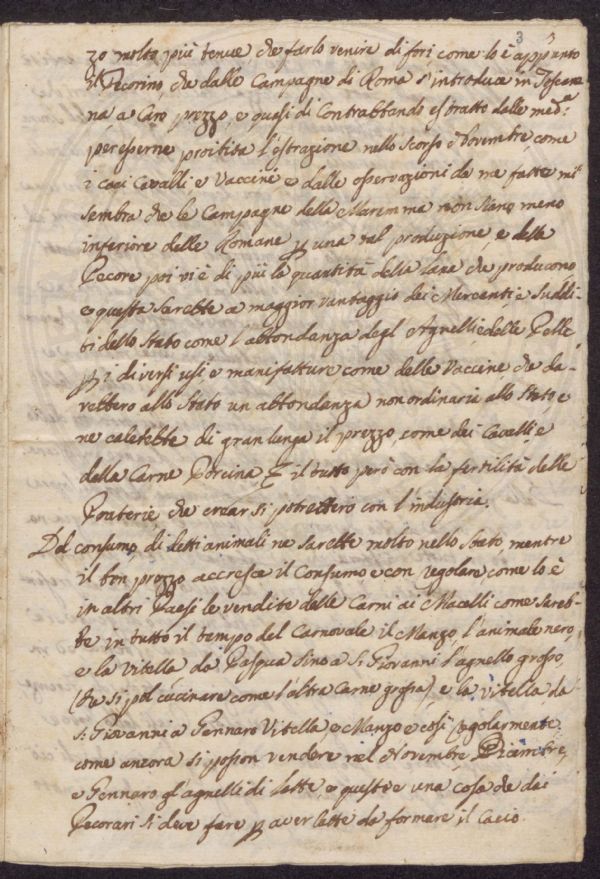 3
zo molto più tenue che farlo venire di fori come lo è appunto
il Pecorino, che dalle Campagne di Roma s'introduce in Tosca
na a Caro prezzo, e quasi di Contrabbando estratto dalle med.e
per esserne proibita l'estrazione nello scorso Novembre, come
i caci Cavalli, e Vaccini e dalle osservazioni da me fatte mi
sembra che le Campagne della Maremma non siano meno
inferiore delle Romane p una tal produzione, e delle
Pecore poi vi è di più la quantità della lana che producono,
e questa sarebbe a maggior vantaggio dei Mercanti e suddi-
ti dello stato come l'abbondanza degl'Agnelli e delle Pelle
p i diversi usi e manifatture come delle Vaccine, che da-
rebbero allo stato un abbondanza non ordinaria allo stato e
ne calerebbe di gran lunga il prezzo, come dei Cavalli, e
della Carne Porcina, E il tutto però con la fertilità delle
Praterie, che crear si potrebbero con l'industria.
Del consumo, di detti animali ne sarebbe molto nello stato, mentre
il bon prezzo accresce il Consumo e con regolare, come lo è
in altri Paesi le vendite delle Carni ai Macelli come sareb-
be in tutto il tempo del Carnovale il Manzo, l'animale nero,
e la Vitella da Pasqua sino a S. Giovanni l'agnello grosso,
(che si pol cucinare come l'altra Carne grossa) e la vitella, da
S. Giovanni a Gennaro Vitella e Manzo e così regolarmente
come ancora si posson vendere nel Novembre Dicembre,
e Gennaro gl'agnelli di latte, e questo e una cosa che dai
Pecorari si deve fare p aver latte da formare il Cacio.